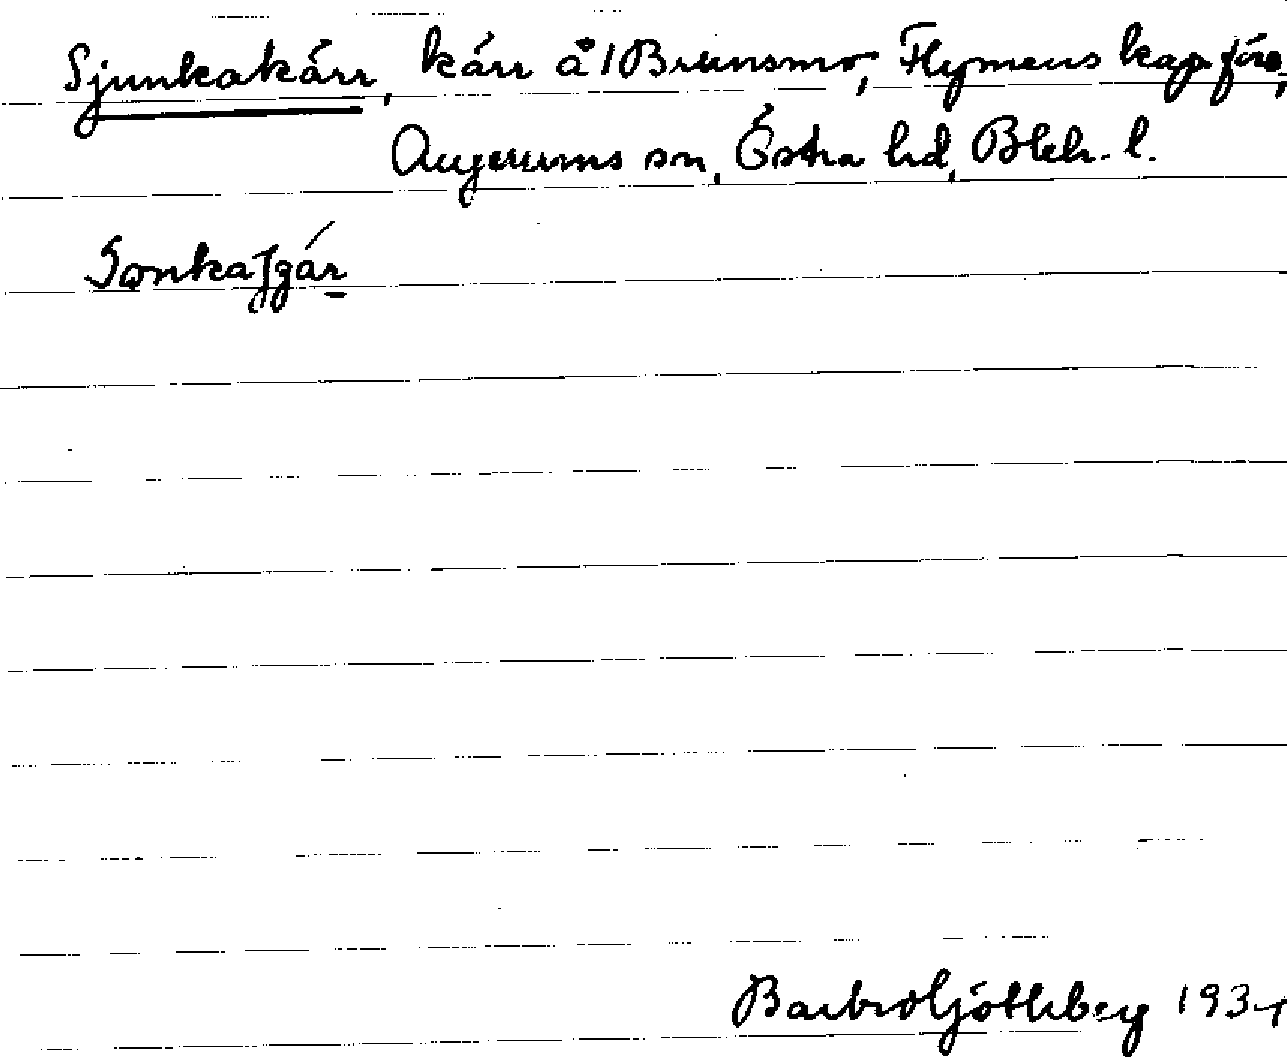 Sjunkakärr, kärr å 1 Brunsmo, Flymens kapförs,
Augerums sn, Östra hd, Blek. l.
Barbro Götlberg 1934